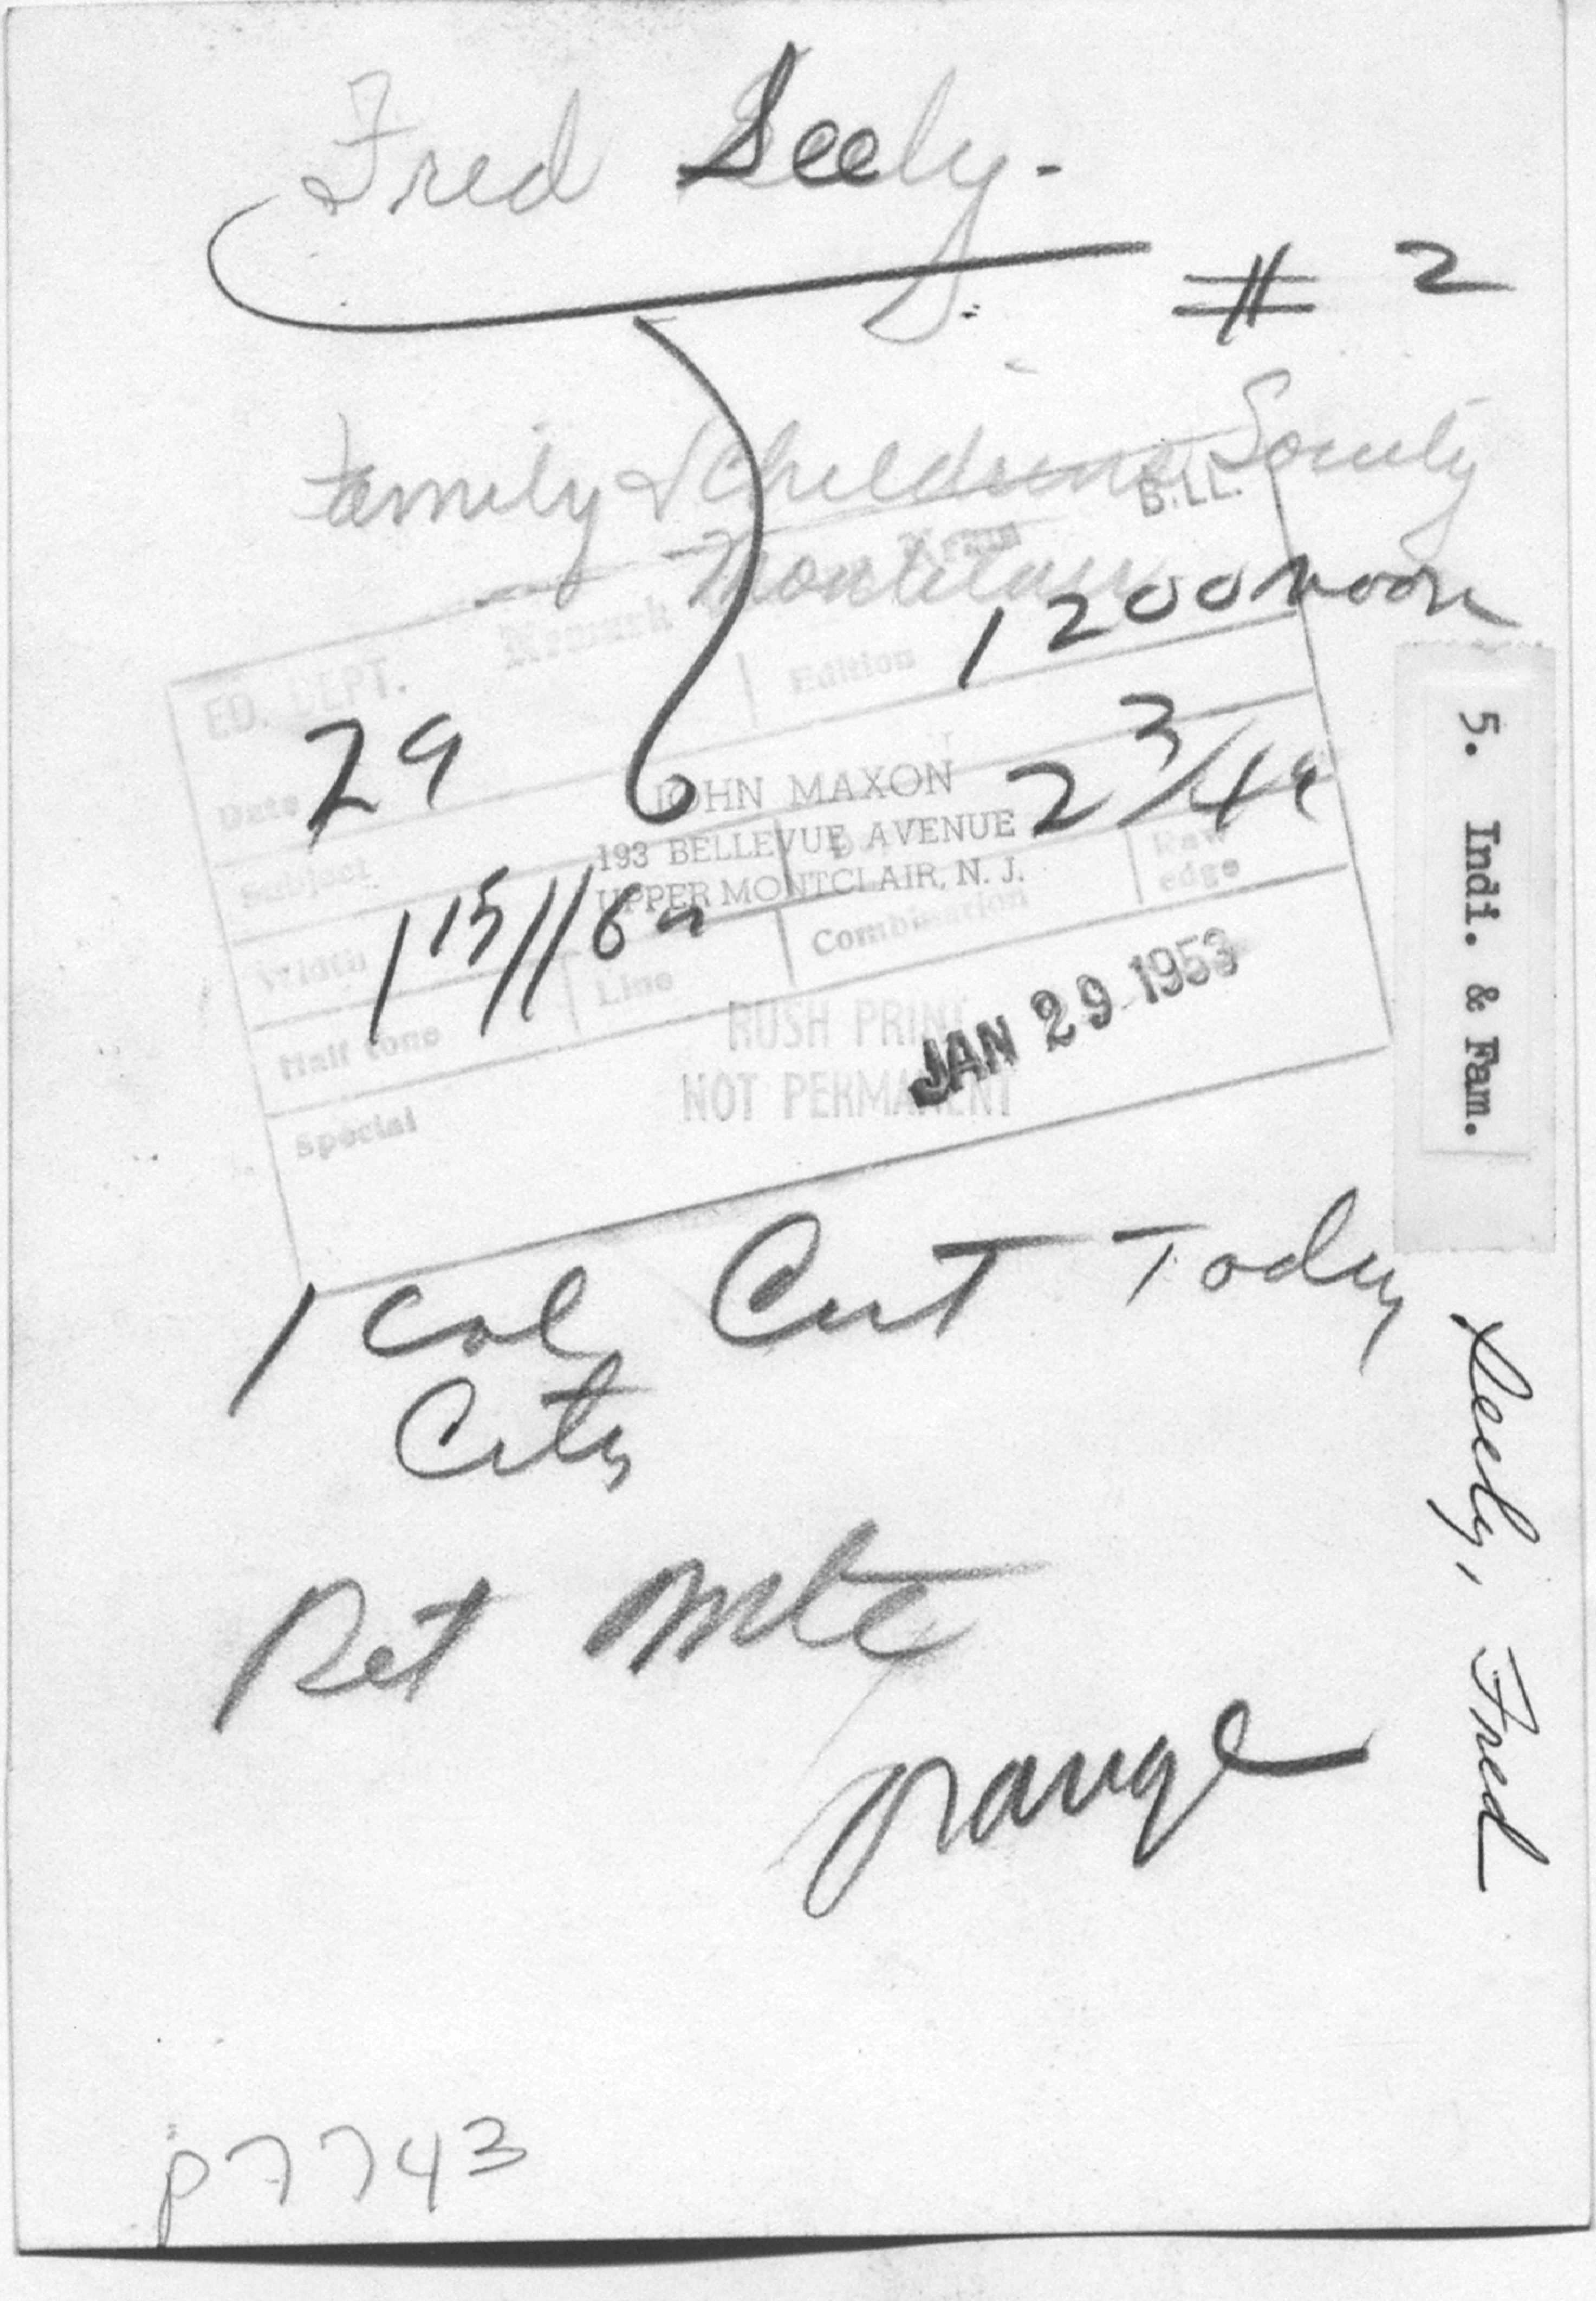 Fred Seely.
# 2
Family & Childrens Society
Montclair
B.LL.
Newark News
1200 noon
ED. DEPT.
Edition
29
Date
2 3/4"
JOHN MAXON
193 BELLEVUE AVENUE
UPPER MONTCLAIR, N. J.
Subject
Raw edge
1 15//6"
Width
Line
Combination
Half tone
RUSH PRINT
NOT PERMANENT
JAN 29 1953
Special
1 Col Cut Today
City
Ret Mtc
Orange
P7743
5. Indi. & Fam.
Seely, Fred